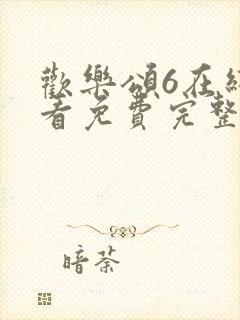 歡樂頌6在線
看免費完整
暗荼